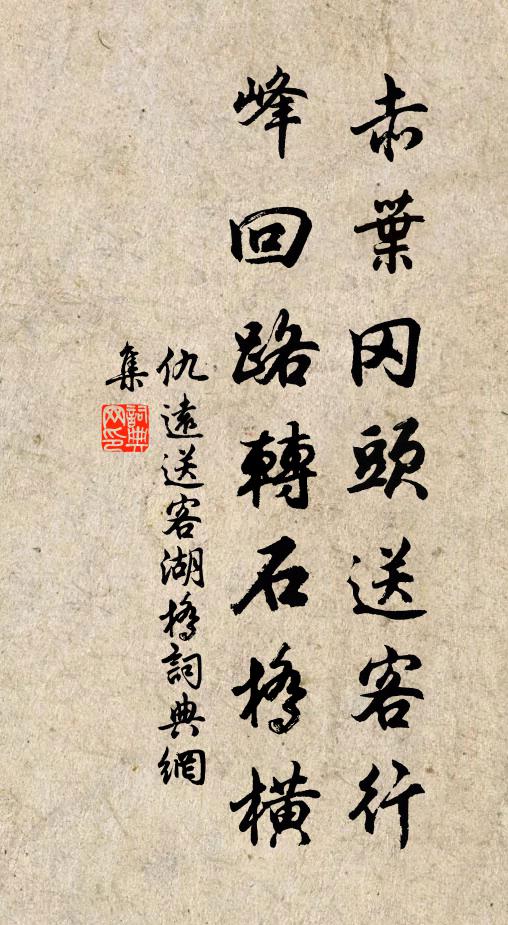 赤葉冈頭送客行
峰回路轉石橋橫
仇遠送客湖橋詞典網
集
詞典網印